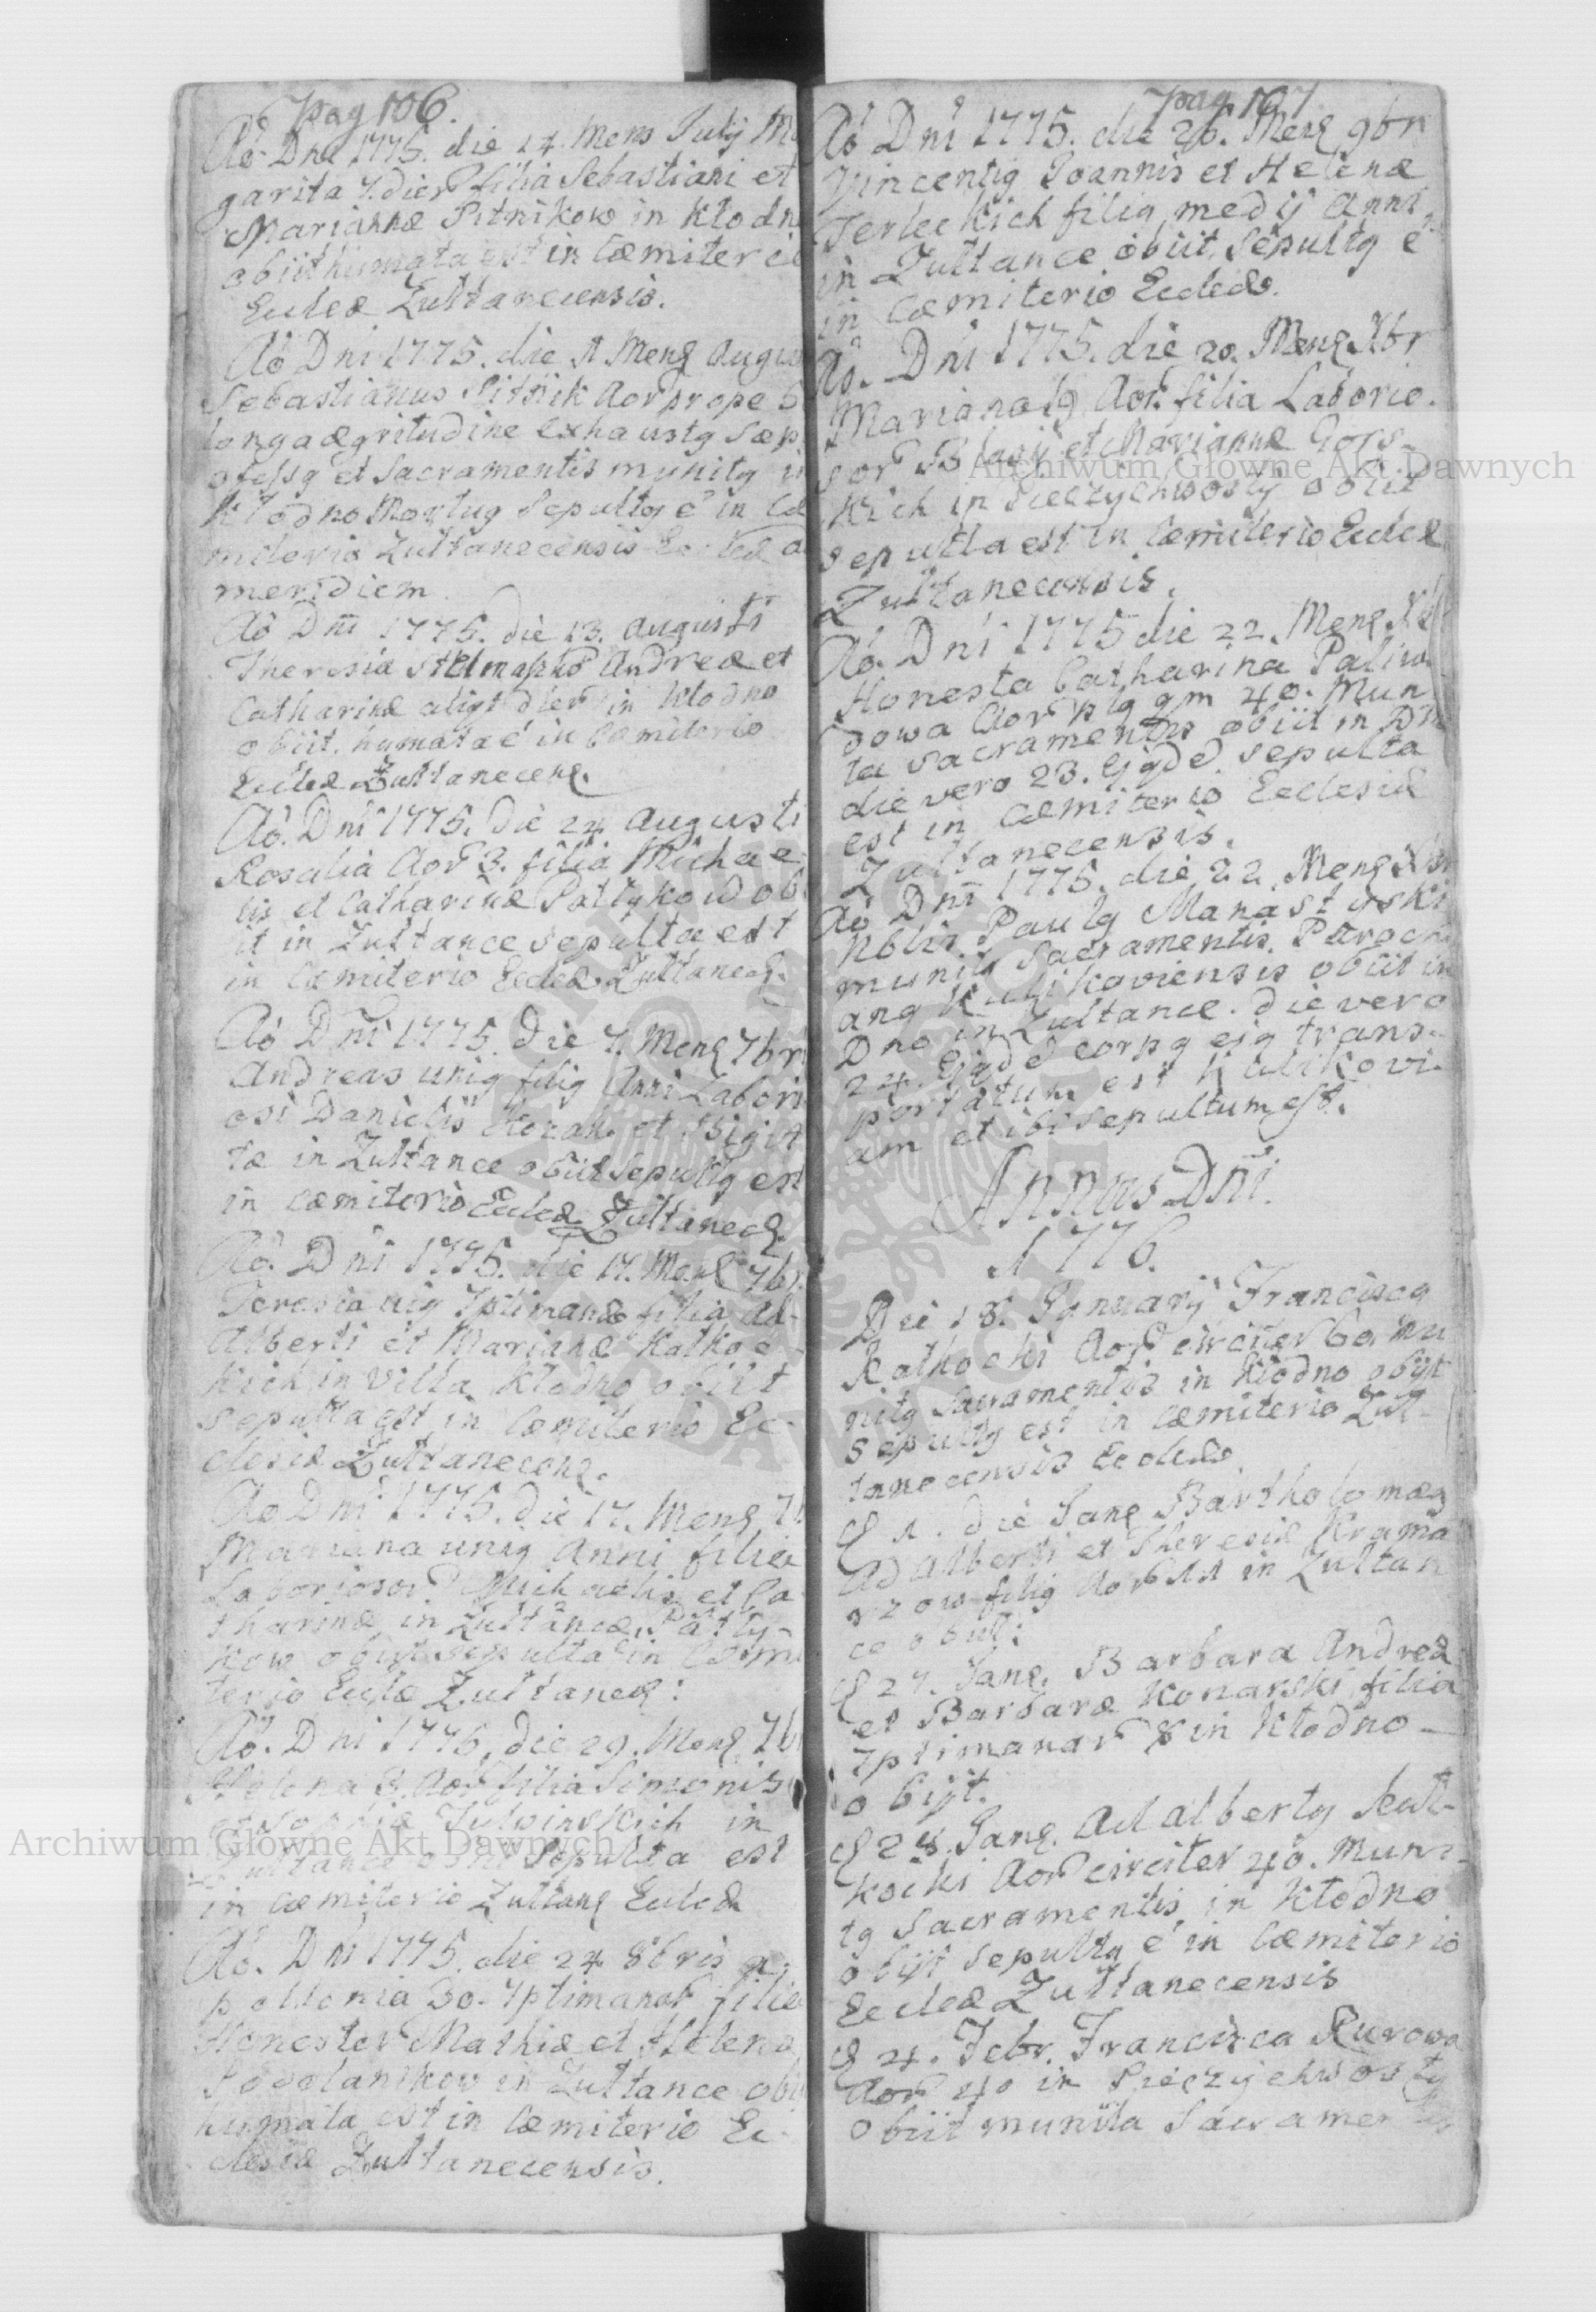 pag 106.
Aō Dni 1775. die 24. Mens Julij Ma
garita 7. dier filia Sebastiani et
Mariannæ Pitnikow in Kłodn
obiit humata est in Cœmiterio
Eccleæ Zułtanecensis.
Aō Dni 1775. die 1 Mens Augus
Sebastianus Pitnik Aor prope 6
longa ægritudine exhaustg sæp
ofessg et Sacramentis munitg in
Kłodno Mortug Sepultg e in Cœ
miterio Zułtanecensis Eccleæ ad
meridiem
Aō Dni 1775. die 13. Augusti
Theresia Andreæ et
Catharinæ dier in Kłodno
obiit. humata e in Cœmiterio
Eccleæ Zułtanecens.
Aō. Dni 1775. die 24 Augusti
Rosalia Aor 3. filia Michae
lis et Catharinæ Pattykow ob
iit in Zułtance sepulta est
in Cœmiterio Eccleæ Zułtanecs.
Aō Dni 1775. die 7. Mens 7br
Andreas unig filig Anni Labori
osi Danielis Kozak et Brigit
tæ in Zułtance obiit Sepultg est
in cœmiterio Eccleæ Zułtanecs.
Aō. Dni 1775. die 17. Mens 7br
Teresia uig 7ptimanæ filia Ad-
alberti et Mariannæ Kalko
kich in villa Kłodno obiit
sepulta est in Cœmiterio Ec-
clesiæ Zułtanecens.
Aō Dni 1775. die 17. Mens 7b
Mariana unig Anni filia
Laborioso Michaelis et Ca
tharinæ in Zułtance Patty-
kow obiit sepulta in Cœmi
terio Eccleæ Zułtanecs:
Aō. Dni 1775. die 29. Mens 7b
Helena 3. Aor filia Simonis
et Sophiæ in
Zułtance obiit Sepulta est
in cœmiterio Zułtans Eccleæ
Aō. Dni 1775. die 24 8bris A
pollonia 30. 7ptimanar filia
Honestor Mathiæ et Helenæ
in Zułtance obi
humata est in Cœmiterio Ec-
clesiæ Zułtanecensis.
pag 107
Aō Dni 1775. die 26. Mens 9br
Vincentig Joannis et Helenæ
Terleckich filig medij Anni
in Zułtance obiit, Sepultg e
in Cœmiterio Eccleæ.
Aō. Dni 1775. die 20. Mens Xbr
Mariana 19 Aor. filia Laborio.
sor Blasij et Mariannæ Gors-
kich in Pieczychwosty obiit
sepulta est in Cœmiterio Eccleæ
Zułtanecensis.
Aō. Dni 1775 die 22. Mens Xb
Honesta Catharina Paliwo
dowa Aor plg qm 40. Muni
ta Sacramentis obiit in Dno
die vero 23. Ejgd. sepulta
est in Cœmiterio Ecclesiæ
Zułtanecensis.
Aō Dni 1775. die 22. Mens Xbr
Nblis Paulg Manastyrski
munitg Sacramentis. Paroch
ang Kulikoviensis obiit in
Dno in Zułtance. die vero
24. Ejgde corpg ejg trans-
portatum est Kulikovi-
am et ibi sepultum est.
Annus Dni
1776.
Die 18. January Franciscg
Kalkocki Aor circiter 60 mu
nitg Sacramentis in Kłodno obijt
sepultg est in cœmiterio Zuł-
tanecensis Eccleæ.
1. die Jans Bartholomæg
Adalberti et Theresiæ Krama
rzow filig Aor 11 in Zułtan
ce obijt:
27. Jans. Barbara Andreæ
et Barbaræ Konarski filia
7ptimanar 8 in Kłodno
obijt.
28. Jans. Adalbertg Kal-
kocki Aor circiter 40. Muni-
tg Sacramentis in Kłodno
obijt sepultg e in Cœmiterio
Eccleæ Zułtanecensis
4. Febr. Francisca
Aor 40 in Pieczychwosty
obiit munita Sacramentis
Archiwum Główne Akt Dawnych
Archiwum Główne Akt Dawnych